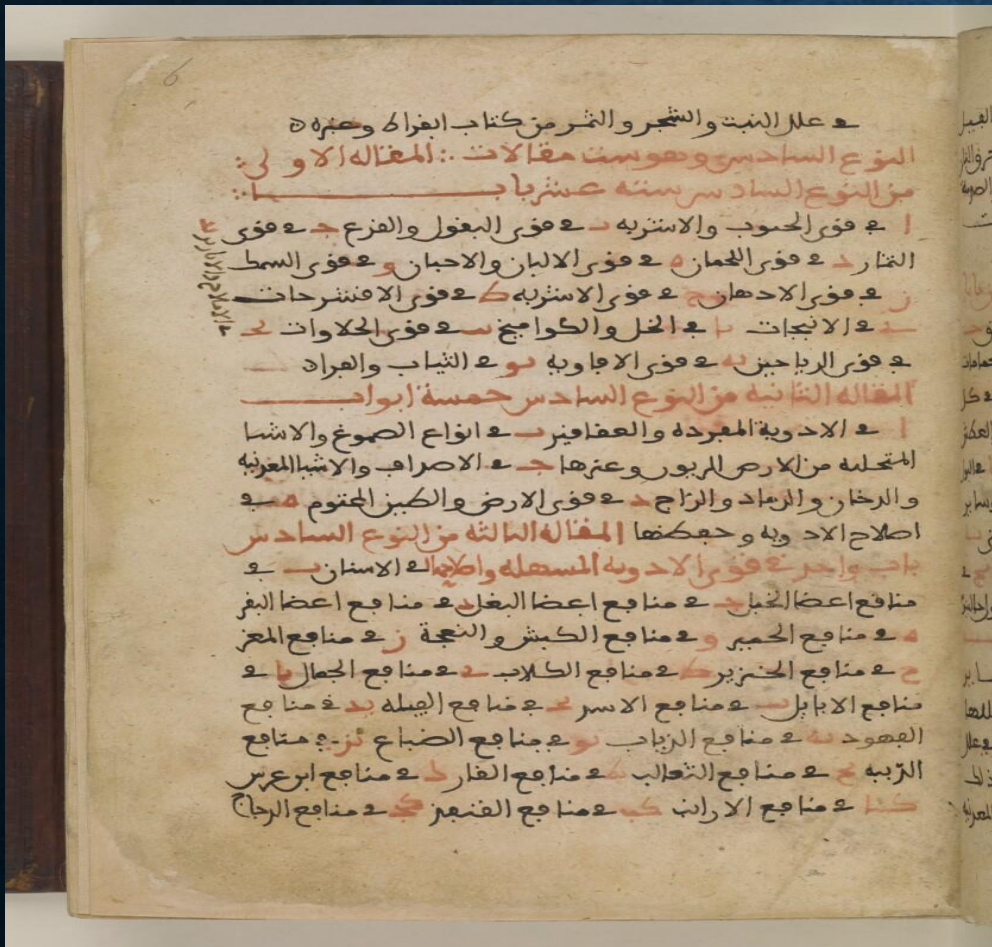 6
في علل النبت والشجر والثمر من كتاب ابقراط وغيره
النوع السادس وهو ست مقالات المقاله الاولى
من النوع السادس سته عشر بابا
ا في قوى الحبوب والاشربه ب في قوى البقول والقرع ج في قوى
الثمار د في قوى اللحمان ه في قوى الالبان والاجبان و في قوى السمك
ز في قوى الادهان ح في قوى الاشربه ط في قوى الافشرجات
ى في الانبجات يا في الخل والكواميخ يب في قوى الحلاوات يج
في قوى الرياحين يه في قوى الافاويه يو في الثياب والفراء
المقاله الثانيه من النوع السادس خمسة ابواب
ا في الادوية المفرده والعقاقير ب في انواع الصموغ والاشيا
المتحلبه من الارض وغيرها ج في الاصداف والاشيا المعدنيه
والدخان والرماد والزاج د في قوى الارض والطين المختوم ه في
اصلاح الادويه وحفظها المقاله الثالثه من النوع السادس
باب واحد في قوى الادويه المسهله في الاسنان ب في
منافع اعضا الخيل ج في منافع اعضا البغل د في منافع اعضا البقر
ه في منافع الحمير و في منافع الكبش والنعجة ز في منافع المعز
ح في منافع الخنزير ط في منافع الكلاب ى في منافع الجمال يا في
منافع الايايل يب في منافع الاسد يج في منافع الفيله يد في منافع
الفهود يه في منافع الذياب يو في منافع الضباع يز في منافع
الدببه يح في منافع الثعالب يط في منافع الفار ك في منافع ابن عرس
كا في منافع الارانب كب في منافع القنفذ كج في منافع الدجاج